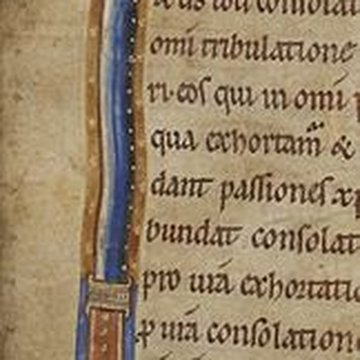 omi tribulatione
ri·eos qui in omi p
qua exhortam̄ &
dant passiones xp
bundat consolat
pro uiā exhortatio
ꝓ uiā consolation